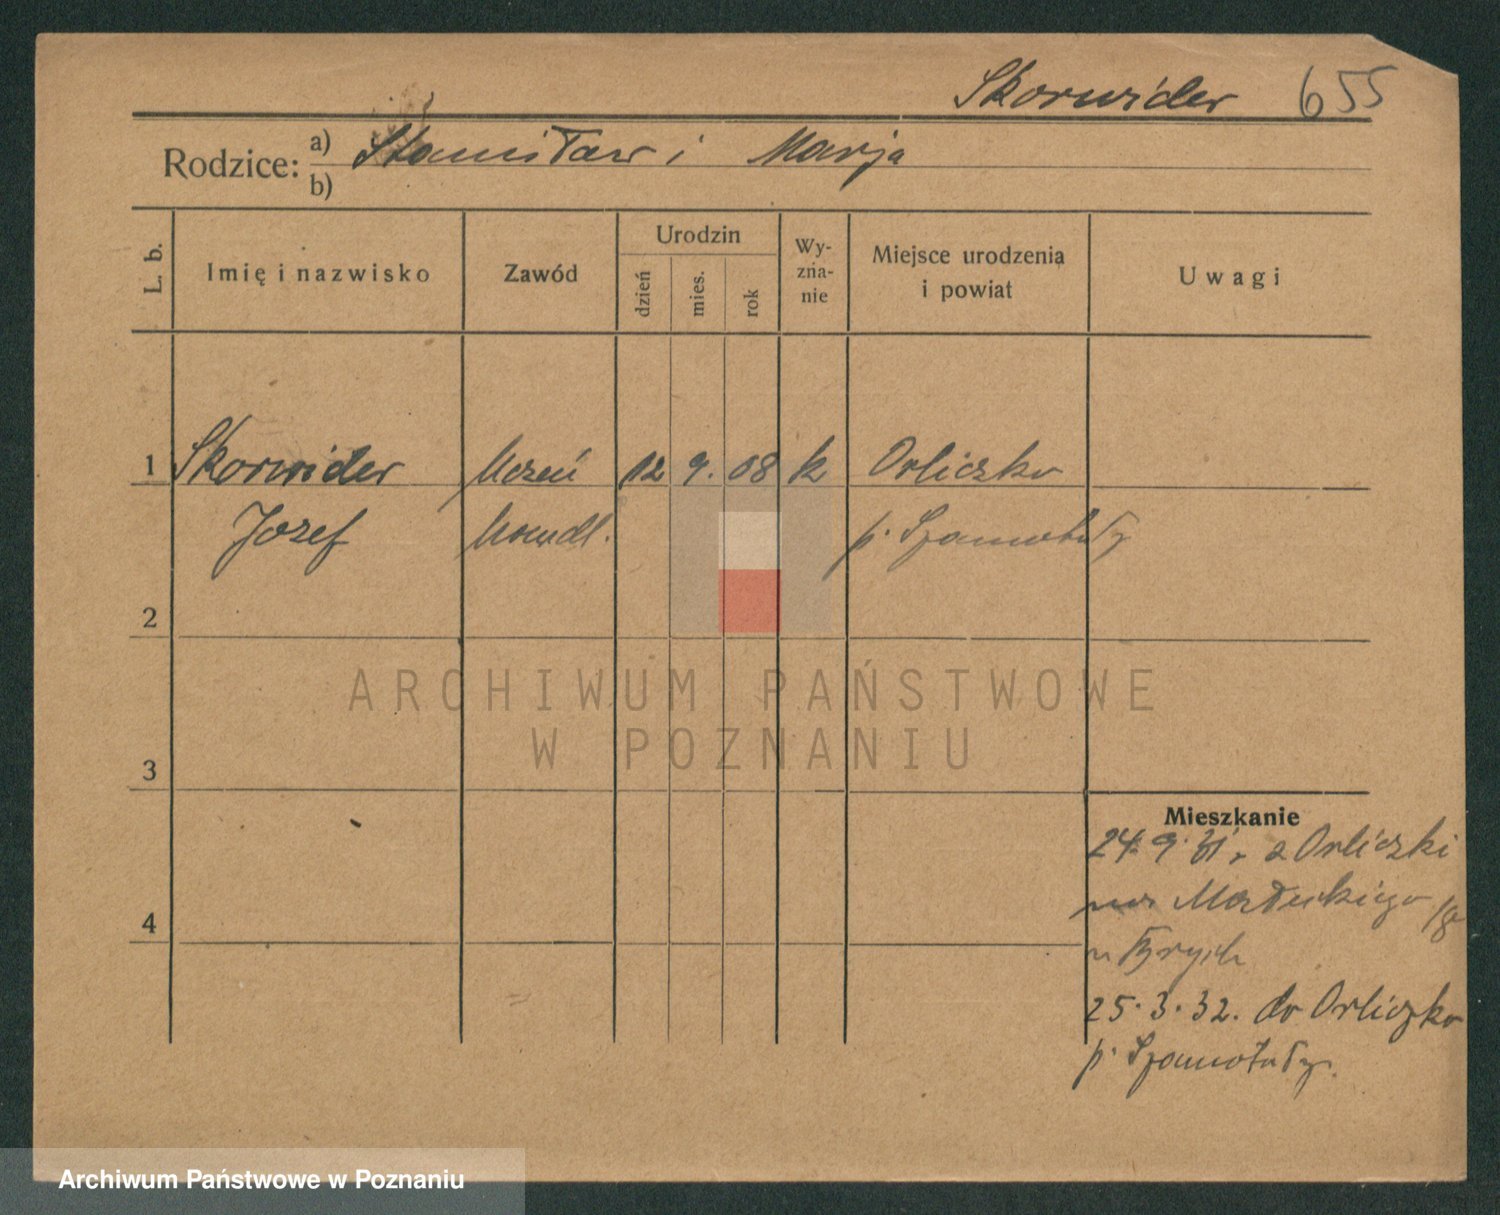 Skorwider 655
Rodzice: a) Stanisław i Marja
b)
L. b.
Imię i nazwisko
Zawód
Urodzin
dzień
mies.
rok
Wy-
zna-
nie
Miejsce urodzenia
i powiat
Uwagi
1 Skorwider Uczeń 12 9. 08 k Orliczko
Jozef handl. p. Szamotuły
2
3
4
Mieszkanie
24.9.31. z Orliczki
Małeckiego
u
25.3.32. do Orliczko
p. Szamotuły.
ARCHIWUM PAŃSTWOWE
W POZNANIU
Archiwum Państwowe w Poznaniu